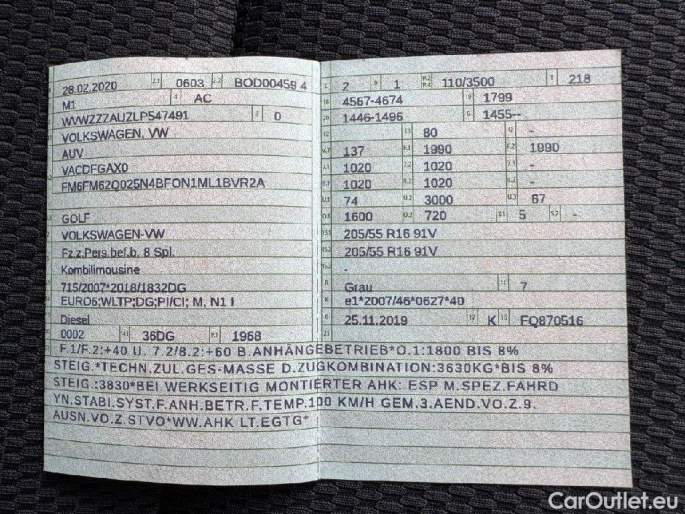 28.02.2020 2.1 0603 2.2 BOD00459 4
M1 4 AC
WVWZZZAUZLP547491 3 0
VOLKSWAGEN, VW
AUV
VACDFGAX0
FM6FM62Q025N4BFON1ML1BVR2A
GOLF
VOLKSWAGEN-VW
Fz.z.Pers.bef.b. 8 Spl.
Kombilimousine
715/2007*2018/1832DG
EURO6;WLTP;DG;PI/CI; M, N1 I
Diesel
0002 36DG 1968
2 9 1 110/3500 T 218
4567-4674 19 1799
1446-1496 G 1455--
80 -
137 1990 1990
1020 1020 -
1020 1020 -
74 3000 67
1600 720 5 -
205/55 R16 91V
205/55 R16 91V
-
Grau 7
e1*2007/46*0627*40
25.11.2019 K FQ870516
F.1/F.2:+40 U. 7.2/8.2:+60 B.ANHÄNGEBETRIEB*O.1:1800 BIS 8%
STEIG.*TECHN.ZUL.GES-MASSE D.ZUGKOMBINATION:3630KG*BIS 8%
STEIG.:3830*BEI WERKSEITIG MONTIERTER AHK: ESP M.SPEZ.FAHRD
YN.STABI.SYST.F.ANH.BETR.F.TEMP.100 KM/H GEM.3.AEND.VO.Z.9.
AUSN.VO.Z.STVO*WW.AHK LT.EGTG*
CarOutlet.eu